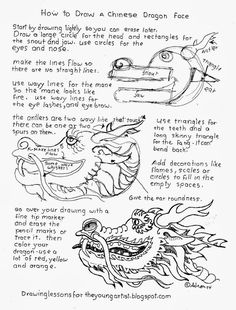 How to Draw a Chinese Dragon Face
Start by drawing lightly so you can erase later.
Draw a large circle for the head and rectangles for
the snout and jaw. use circles for the
eyes and nose.
make the lines flow so
there are no straight lines.
Snout
Jaw
use wavy lines for the mane
So the mane looks like
fire. use wavy lines for
the eye lashes, and eye brow.
the antlers are two wavy lines that touch
there can be one or two
spurs on them.
wavy lines
flow
whiskers
use triangles for
the teeth and a
long skinny triangle
for the fang. it can
bend back.
Add decorations like
flames, scales or
circles to fill in the
empty spaces.
Give the ear roundness.
go over your drawing with a
fine tip marker
and erase the
pencil marks or
trace it. then
color your
dragon-use a
lot of red, yellow
and orange.
Drawinglessons for theyoungartist.blogspot.com